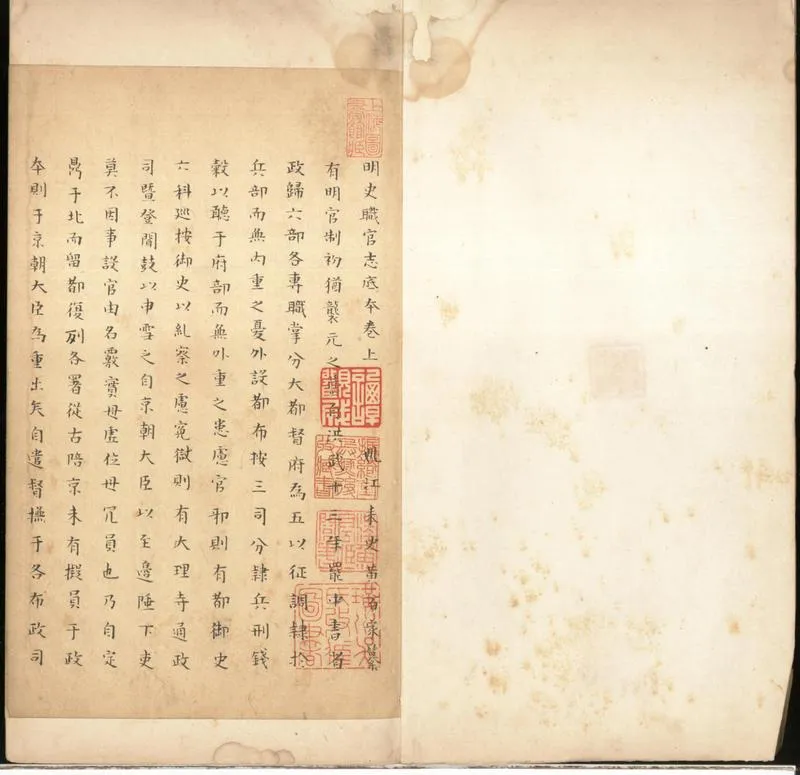 上海圖書館藏
明史職官志底夲卷上
姚江耒史黄百家纂
有明官制初猶襲元之舊自洪武十三年罷中書省
政歸六部各專職掌分大都督府為五以征調隸於
兵部而無内重之憂外設都布按三司分隸兵刑錢
穀以聽于府部而無外重之患慮官邪則有都御史
六科巡按御史以糺察之慮寃獄則有大理寺通政
司暨登聞鼓以申雪之自京朝大臣以至邊陲下吏
莫不因事設官由名覈實毋虛位毋冗員也乃自定
鼎于北而留都復列各署從古陪京未有擬員于政
夲則于京朝大臣為重出矣自遣督撫于各布政司